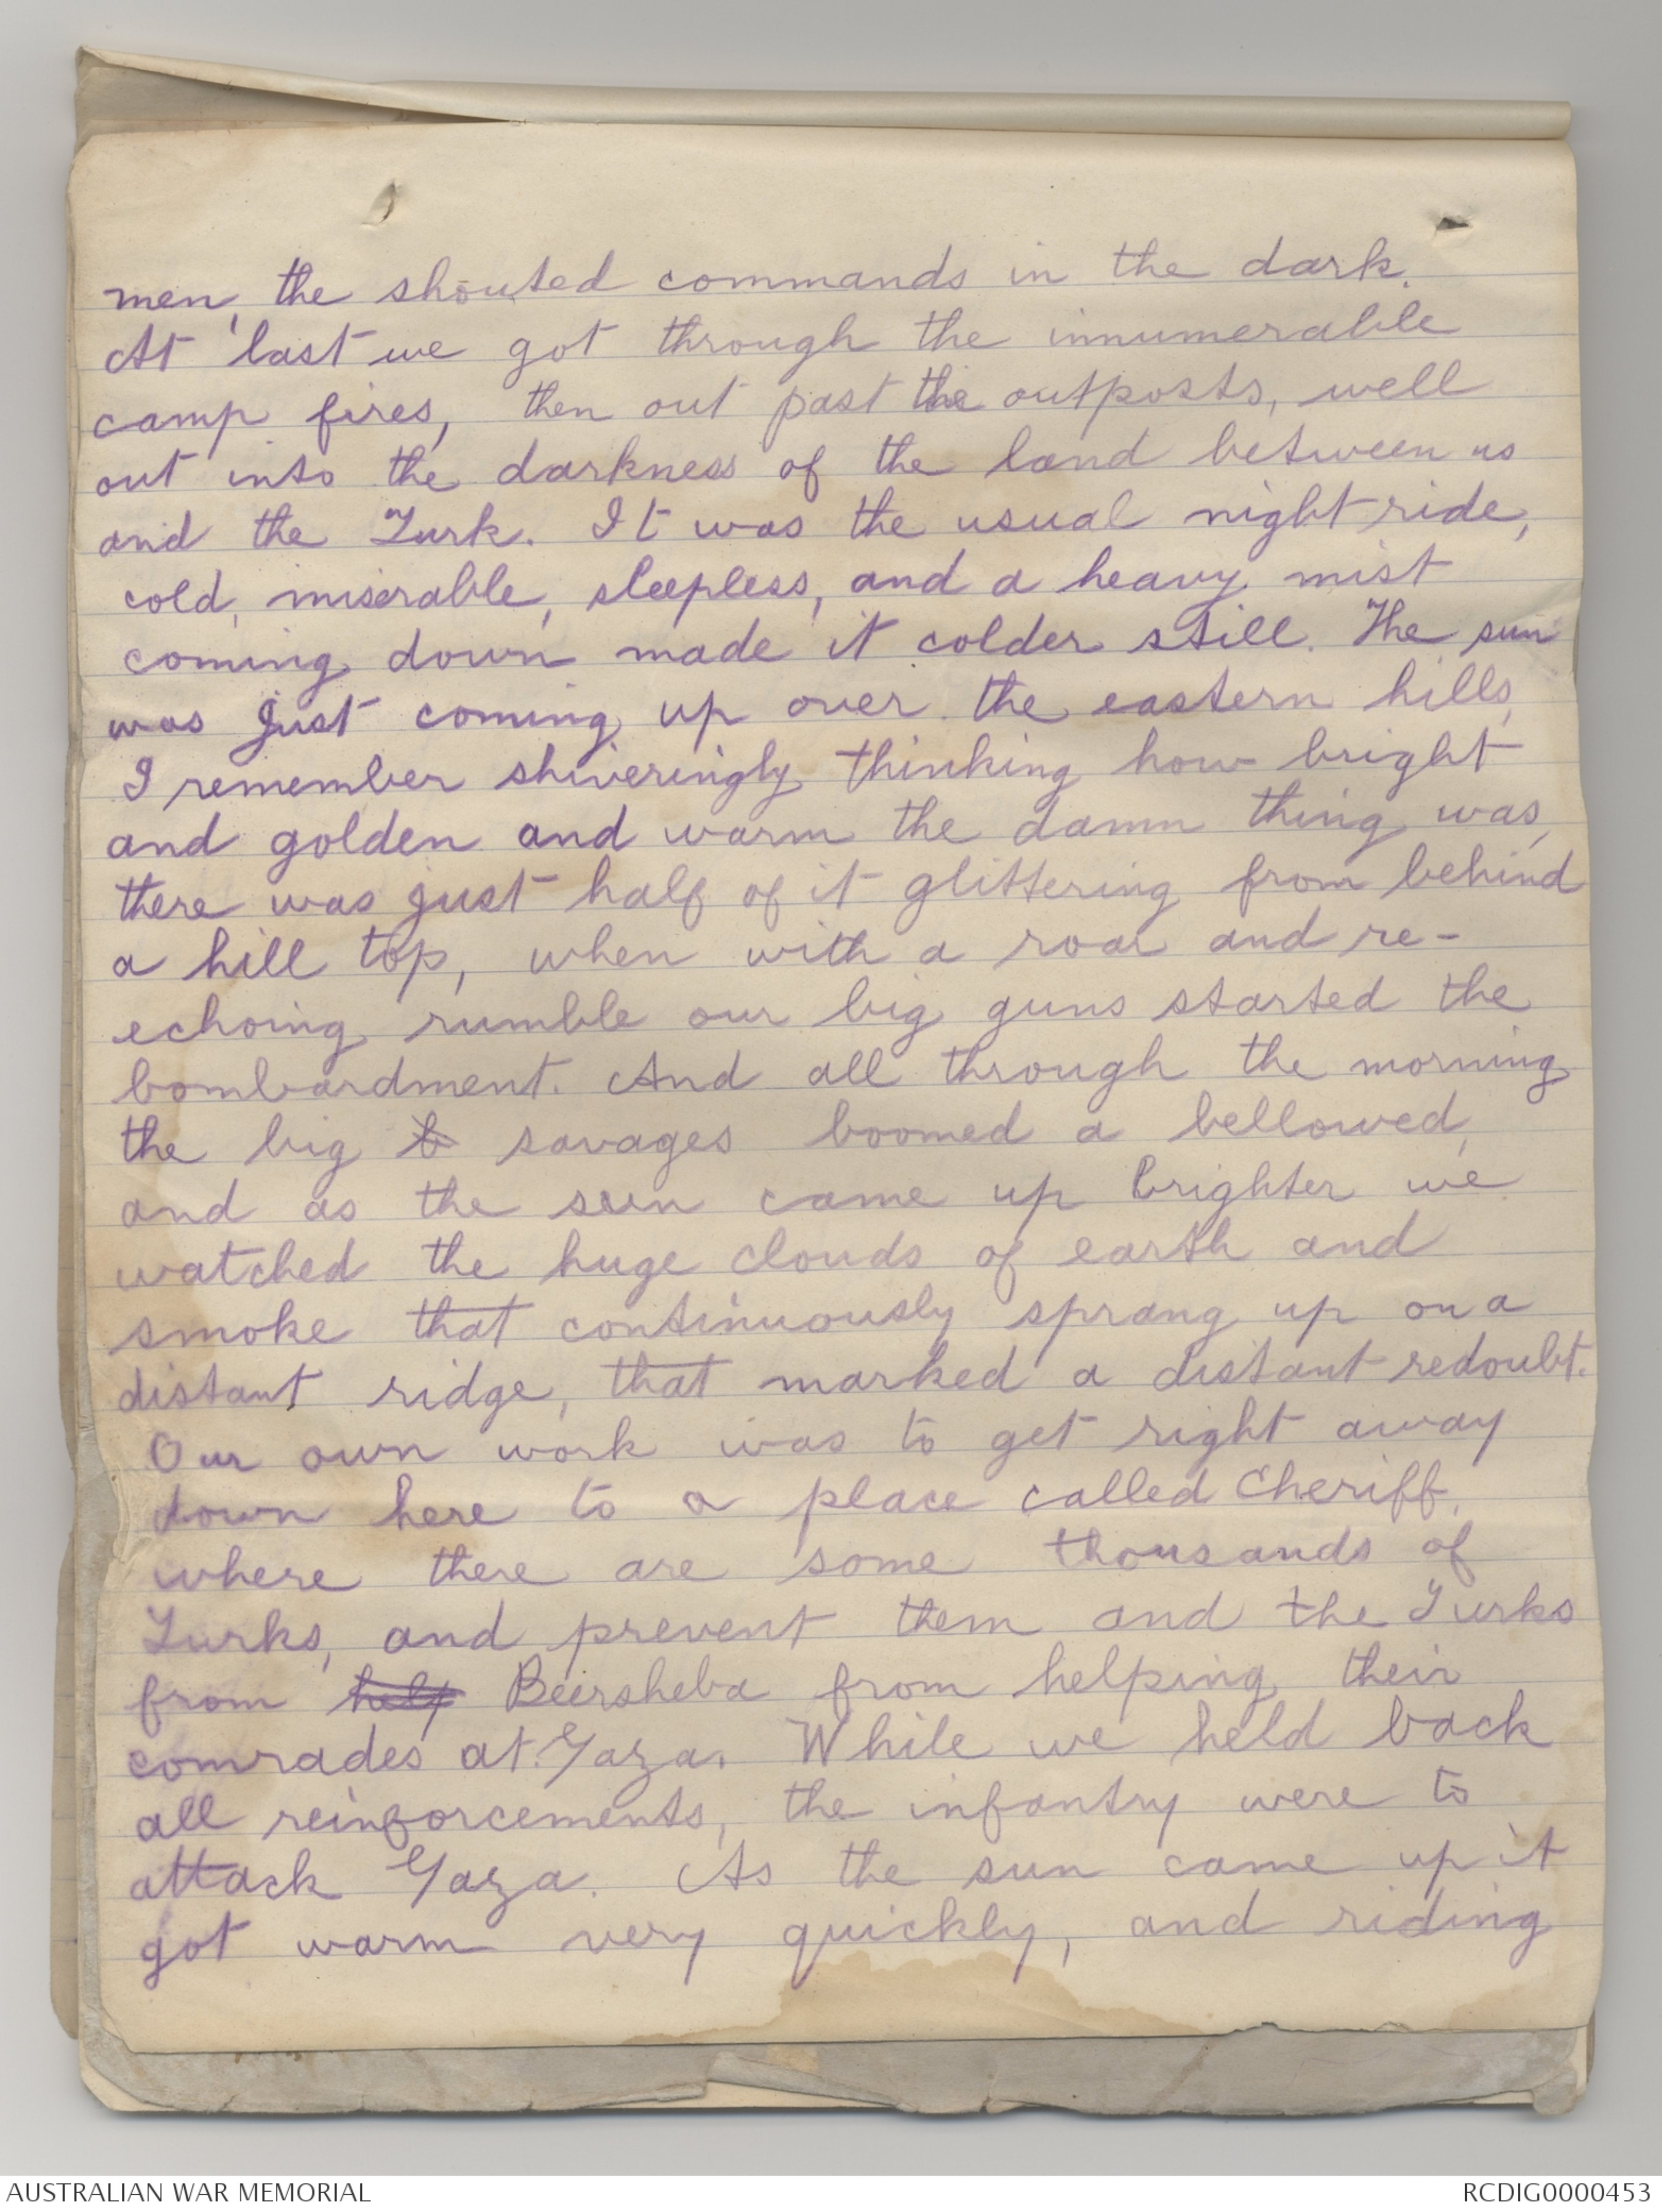 men, the shouted commands in the dark.
At last we got through the innumerable
camp fires, then out past the outposts, well
out into the darkness of the land between us
and the Turk. It was the usual night ride,
cold, miserable, sleepless, and a heavy mist
coming down made it colder still. The sun
was just coming up over the eastern hills,
I remember shiveringly thinking how bright
and golden and warm the damn thing was,
there was just half of it glittering from behind
a hill top, when with a roar and re-
echoing rumble our big guns started the
bombardment. And all through the morning
the big b savages boomed a bellowed,
and as the sun came up brighter we
watched the huge clouds of earth and
smoke that continuously sprang up on a
distant ridge, that marked a distant redoubt.
Our own work was to get right away
down here to a place called Cheriff,
where there are some thousands of
Turks, and prevent them and the Turks
from help Beersheba from helping their
comrades at Gaza. While we held back
all reinforcements, the infantry were to
attack Gaza. As the sun came up it
got warm very quickly, and riding
AUSTRALIAN WAR MEMORIAL
RCDIG0000453